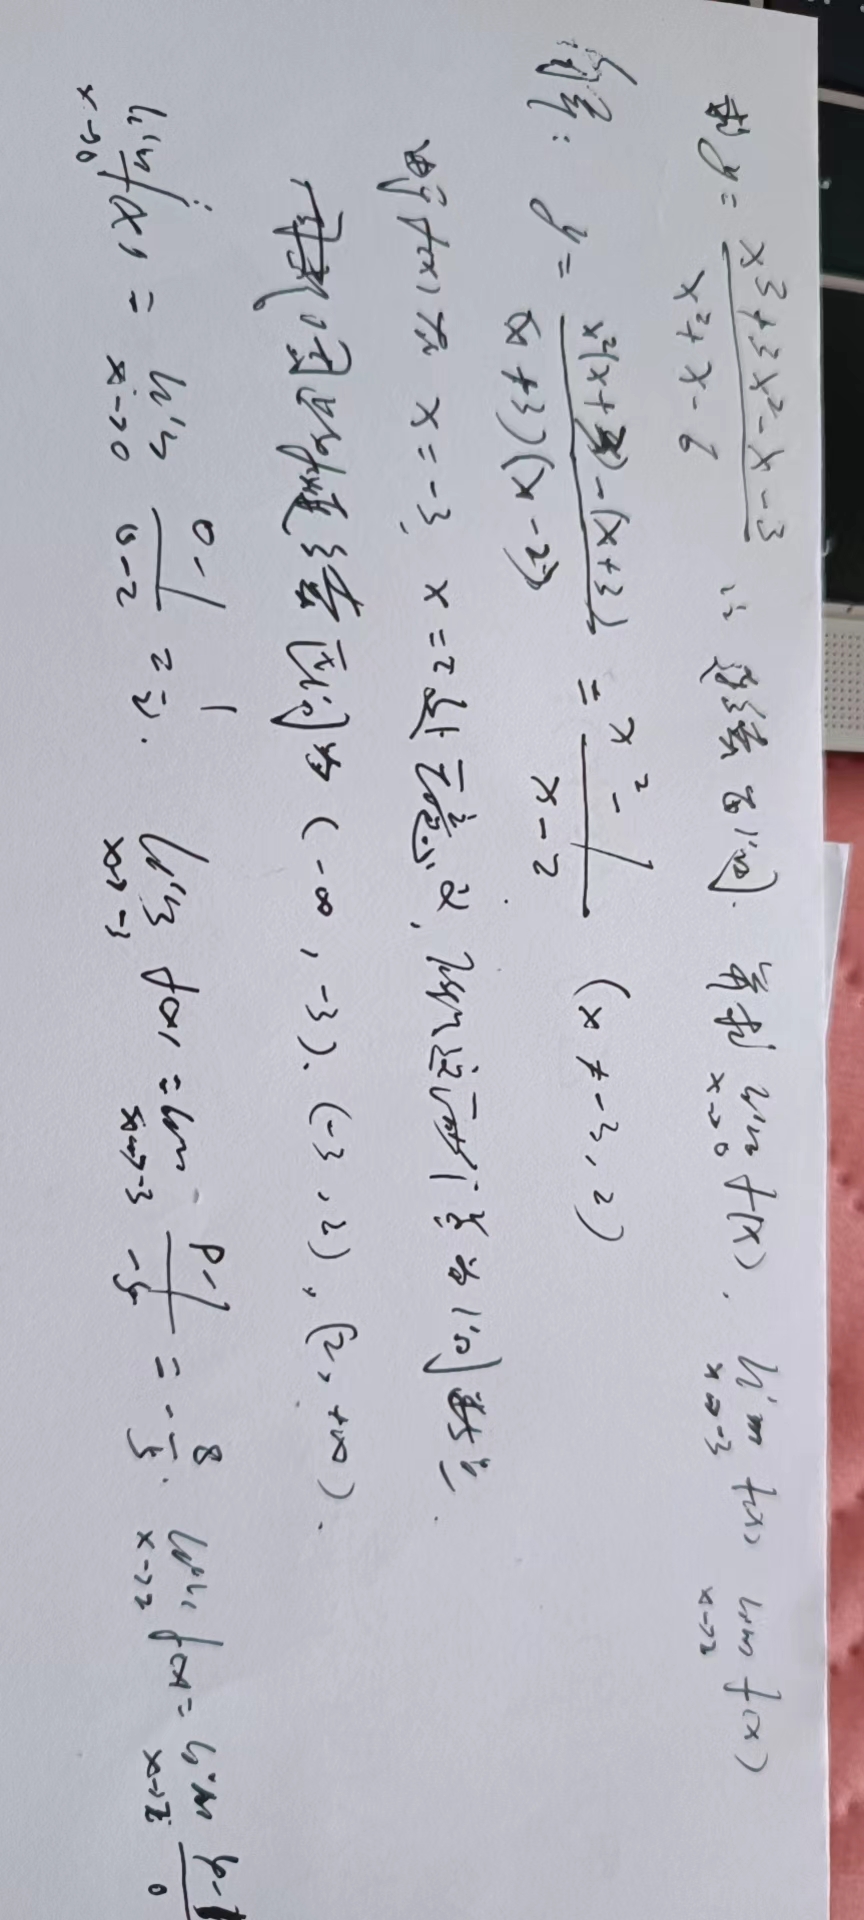 求 y = (x³+3x²-x-3)/(x²+x-6) 的 连续区间. 并求 lim x→0 f(x), lim x→-3 f(x) lim x→2 f(x)
解: y = (x²(x+3)-(x+3))/((x+3)(x-2)) = (x²-1)/(x-2) (x≠-3, 2)
f(x) 在 x=-3, x=2 处无意义,
区间为 (-∞, -3). (-3, 2), (2, +∞).
lim x→0 f(x) = lim x→0 (0-1)/(0-2) = 1/2. lim x→-3 f(x) = lim x→-3 (9-1)/-5 = -8/5. lim x→2 f(x) = lim x→2